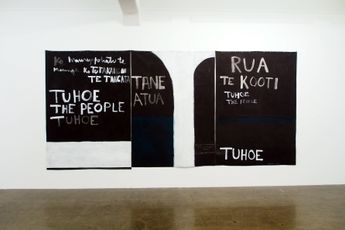 Ko Maungapohatu te
Maunga Ko TE KAKAHU
TE TANGATA
TUHOE
THE PEOPLE
TUHOE
TANE
ATUA
RUA
TE KOOTI
TUHOE
THE PEOPLE
TUHOE